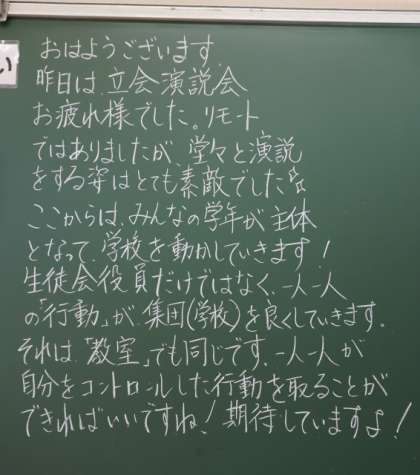 い
おはようございます
昨日は、立会演説会
お疲れ様でした。リモート
ではありましたが、堂々と演説
をする姿はとても素敵でした☆
ここからは、みんなの学年が主体
となって、学校を動かしていきます！
生徒会役員だけではなく、一人一人
の「行動」が、集団(学校)を良くしていきます。
それは「教室」でも同じです。一人一人が
自分をコントロールした行動を取ることが
できればいいですね！期待していますよ！